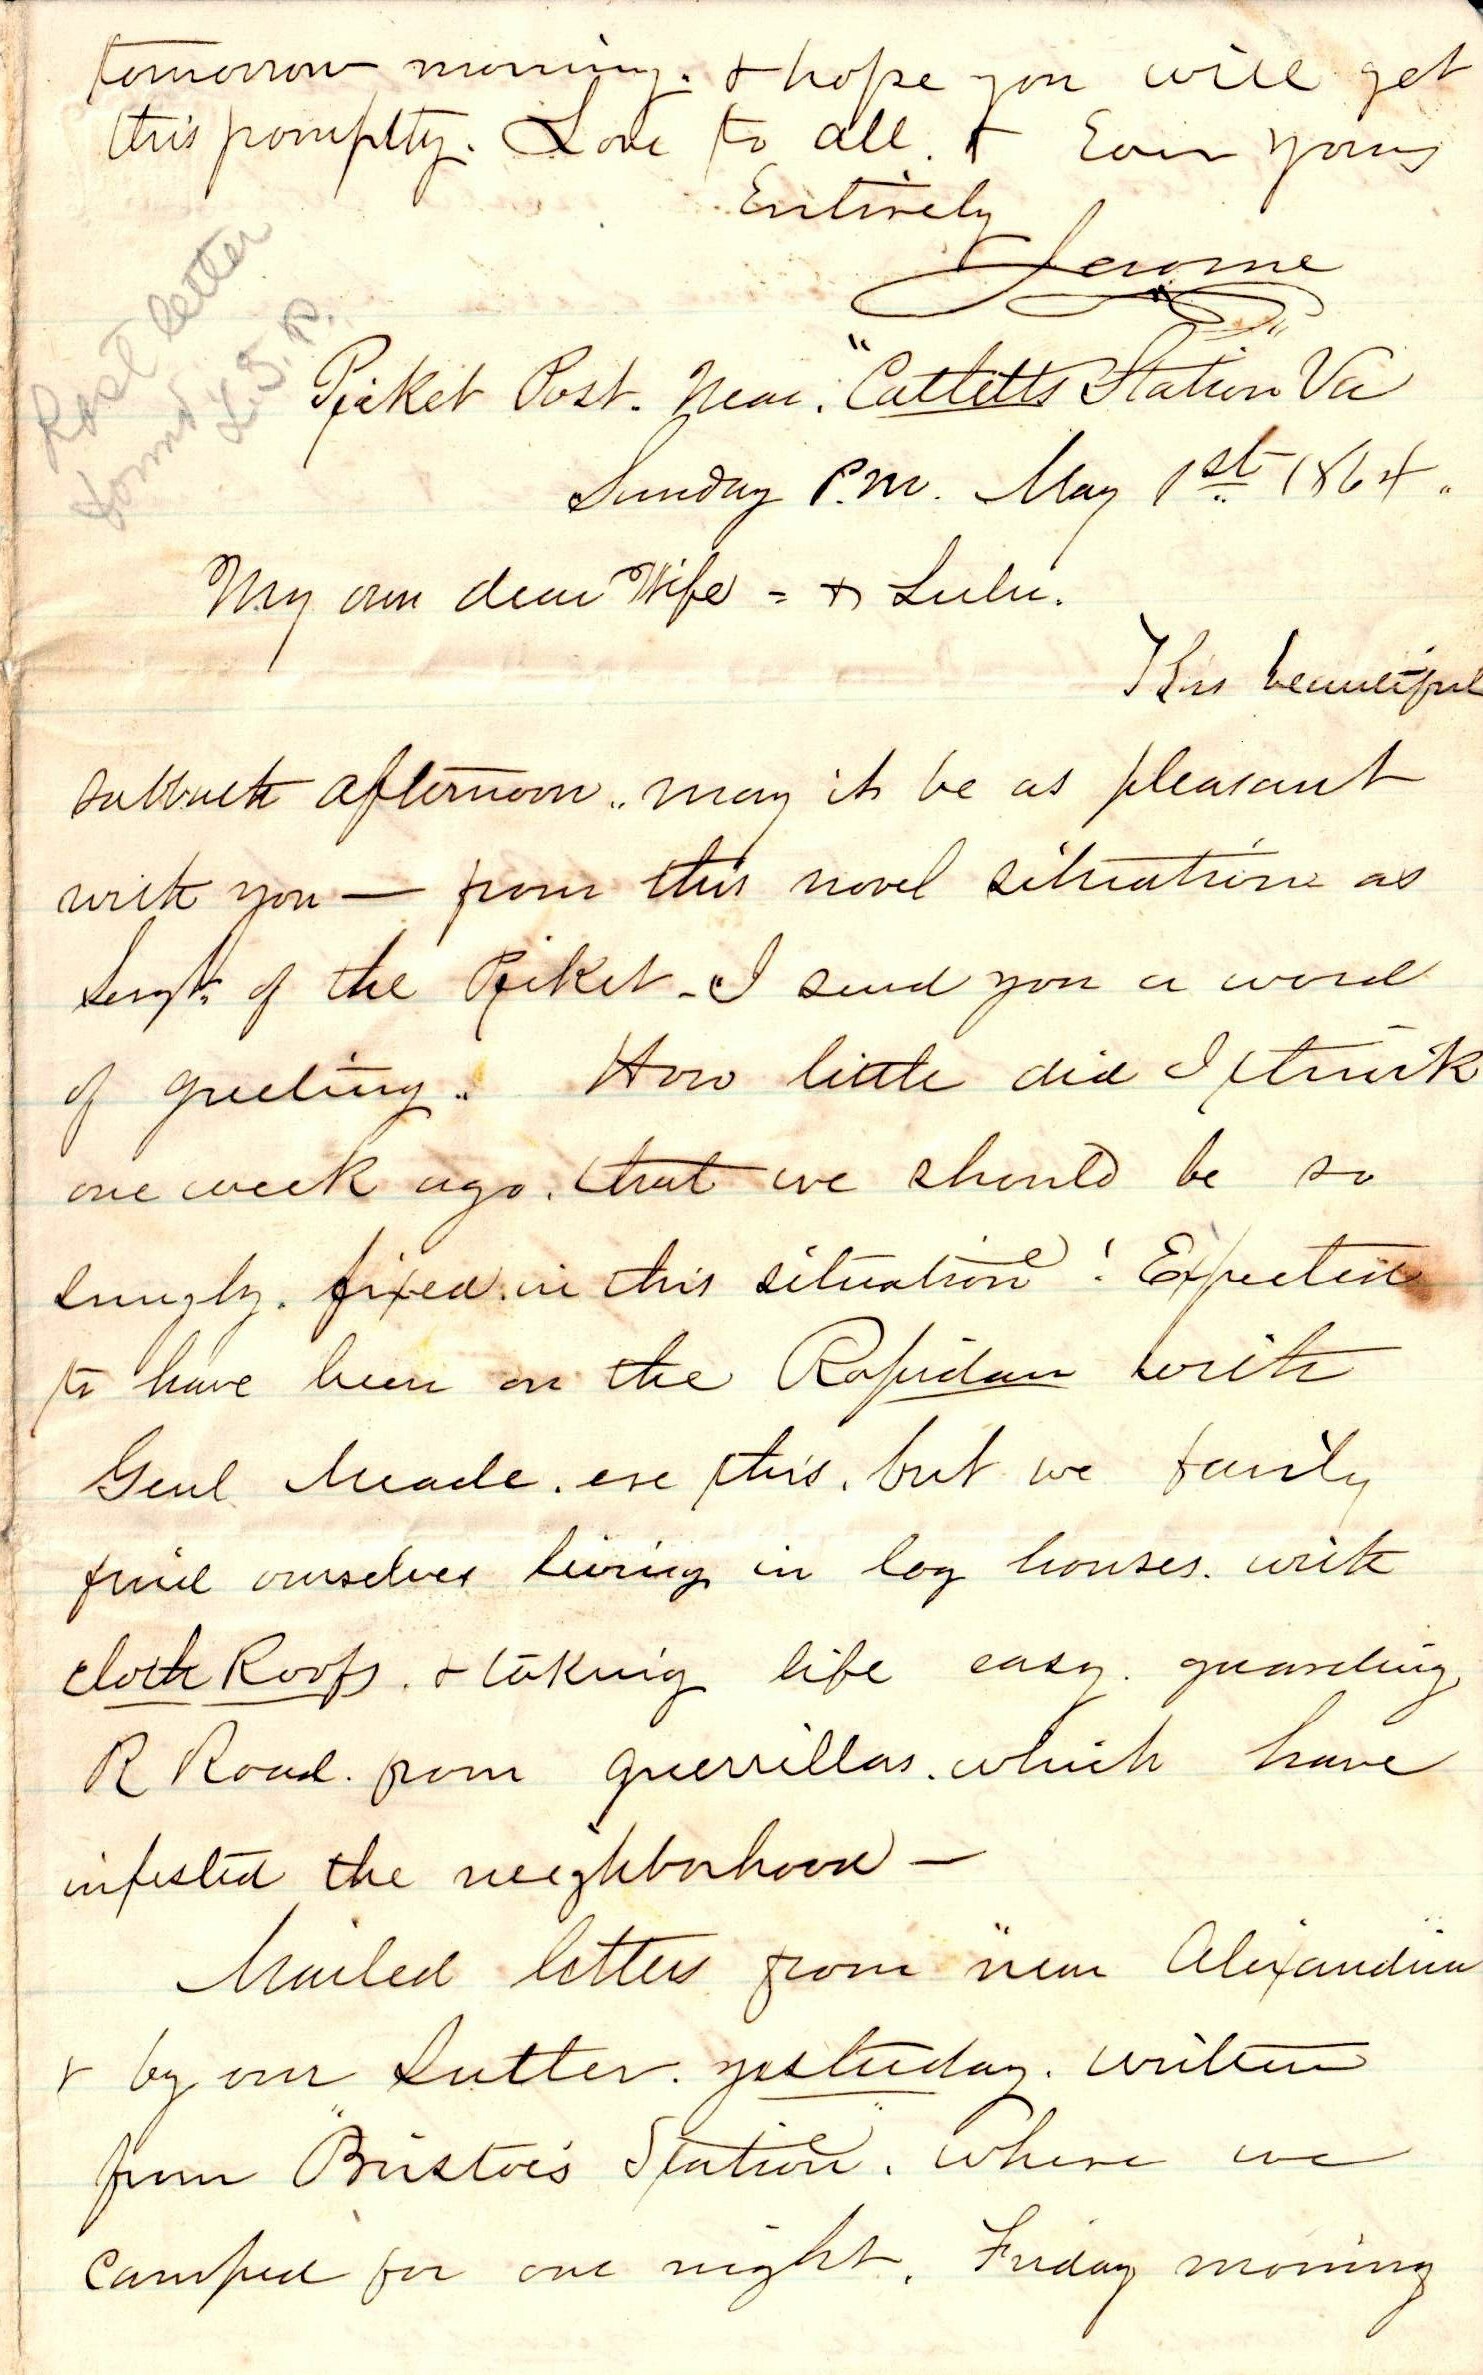 tomorrow morning. & hope you will get
this pomptly. Love to all. & Ever yours
Entirely
Jerome
Last letter
found L.S.P.
Picket Post. Near. "Catletts Station Va"
Sunday P.M. May 1st 1864.
My own dear Wife = & Lulu.
This beautiful
sabbath afternoon, may it be as pleasant
with you — from this novel situation as
Sergt. of the Picket - I send you a word
of greeting. How little did I think
one week ago. that we should be so
snugly. fixed in this situation! Expected
to have been on the Rapidan with
Genl Meade. ere this. but we fairly
find ourselves living in log houses. with
cloth Roofs. & taking life easy. guarding
R Road. from guerrillas. which have
infested the neighborhood —
Mailed letters from near Alexandria
& by our Sutler. yesterday. written
from "Bristoe's Station". where we
camped for one night. Friday morning